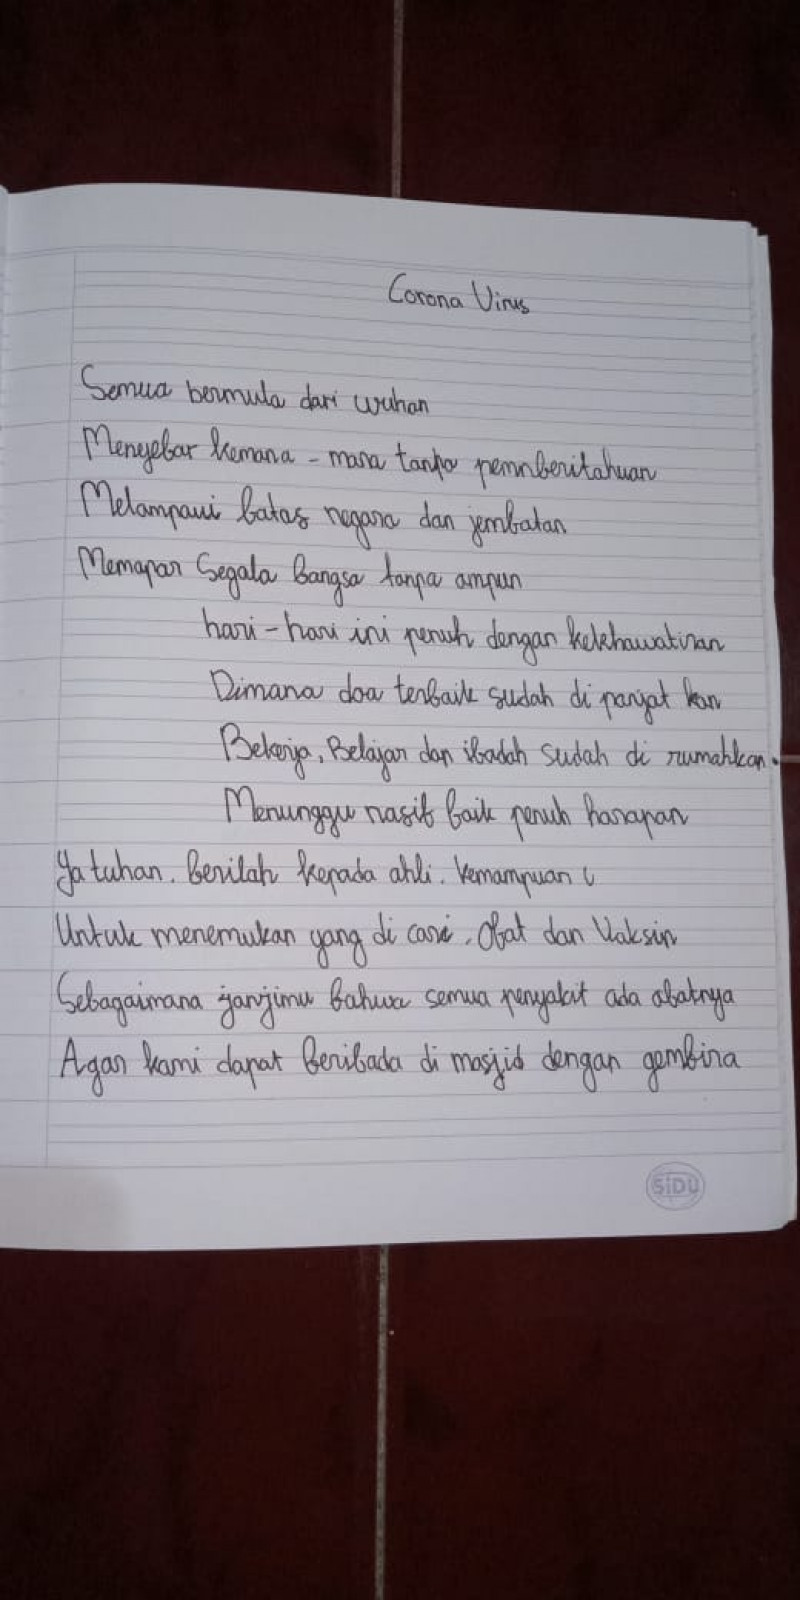 Corona Virus
Semua bermula dari wuhan
Menyebar kemana - mana tanpa pemnberitahuan
Melampaui batas negara dan jembatan
Memapar Segala Bangsa tanpa ampun
hari - hari ini penuh dengan kekhawatiran
Dimana doa terbaik sudah di panjat kan
Bekerja, Belajar dan ibadah sudah di rumahkan.
Menunggu nasib baik penuh harapan
Ya tuhan. Berilah kepada ahli. Kemampuan
Untuk menemukan yang di cari. Obat dan Vaksin
Sebagaimana janjimu bahwa semua penyakit ada obatnya
Agar kami dapat beribada di masjid dengan gembira
SiDU